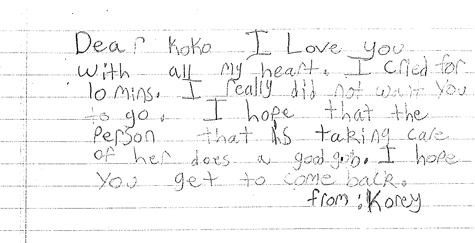 Dear Koko I Love you
with all my heart. I cried for
10 mins. I really did not want you
to go. I hope that the
Person that is taking care
of her does a good gob. I hope
you get to come back.
from: Korey